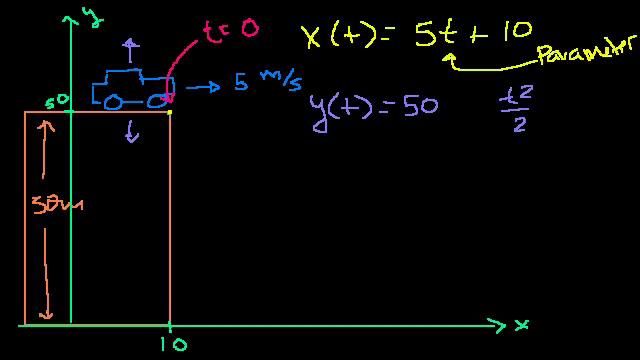 y
t=0
x(t)= 5t+10
Parameter
5 m/s
y(t)=50 t²/2
50
50m
10
x